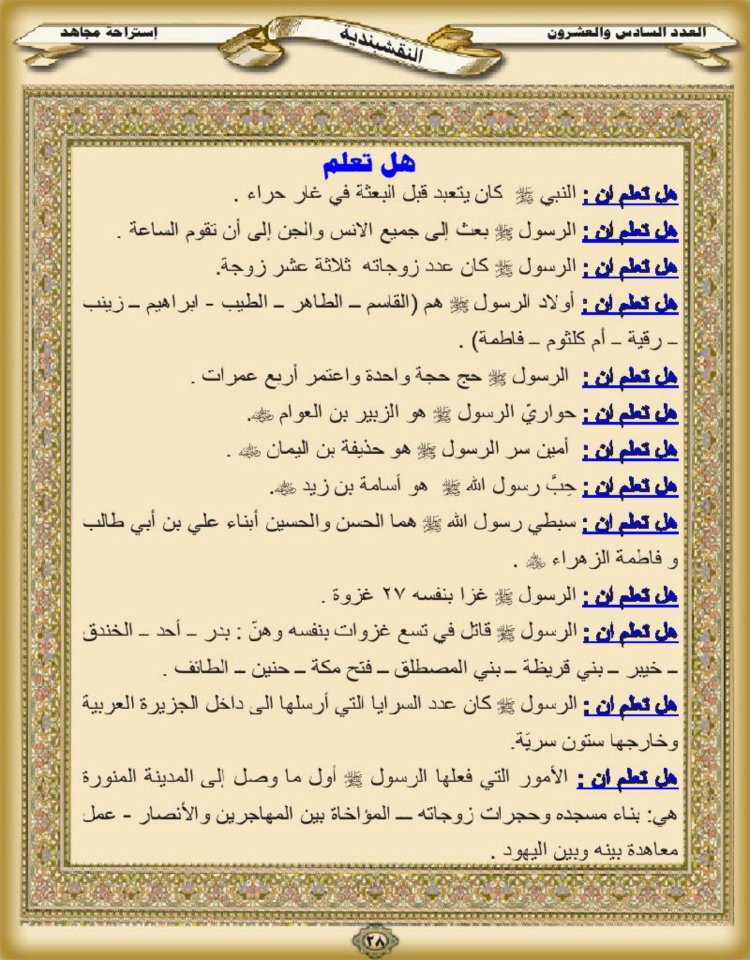 العدد السادس والعشرون
النقشبندية
إستراحة مجاهد
هل تعلم
هل تعلم ان : النبي ﷺ كان يتعبد قبل البعثة في غار حراء .
هل تعلم ان : الرسول ﷺ بعث إلى جميع الانس والجن إلى أن تقوم الساعة .
هل تعلم ان : الرسول ﷺ كان عدد زوجاته ثلاثة عشر زوجة.
هل تعلم ان : أولاد الرسول ﷺ هم (القاسم – الطاهر – الطيب - ابراهيم – زينب
– رقية – أم كلثوم – فاطمة) .
هل تعلم ان : الرسول ﷺ حج حجة واحدة واعتمر أربع عمرات .
هل تعلم ان : حواريّ الرسول ﷺ هو الزبير بن العوام .
هل تعلم ان : أمين سر الرسول ﷺ هو حذيفة بن اليمان .
هل تعلم ان : حِبَّ رسول الله ﷺ هو أسامة بن زيد .
هل تعلم ان : سبطي رسول الله ﷺ هما الحسن والحسين أبناء علي بن أبي طالب
و فاطمة الزهراء .
هل تعلم ان : الرسول ﷺ غزا بنفسه ٢٧ غزوة .
هل تعلم ان : الرسول ﷺ قاتل في تسع غزوات بنفسه وهنّ : بدر – أحد – الخندق
– خيبر – بني قريظة – بني المصطلق – فتح مكة – حنين – الطائف .
هل تعلم ان : الرسول ﷺ كان عدد السرايا التي أرسلها الى داخل الجزيرة العربية
وخارجها ستون سريّة.
هل تعلم ان : الأمور التي فعلها الرسول ﷺ أول ما وصل إلى المدينة المنورة
هي: بناء مسجده وحجرات زوجاته – المؤاخاة بين المهاجرين والأنصار - عمل
معاهدة بينه وبين اليهود .
٢٨